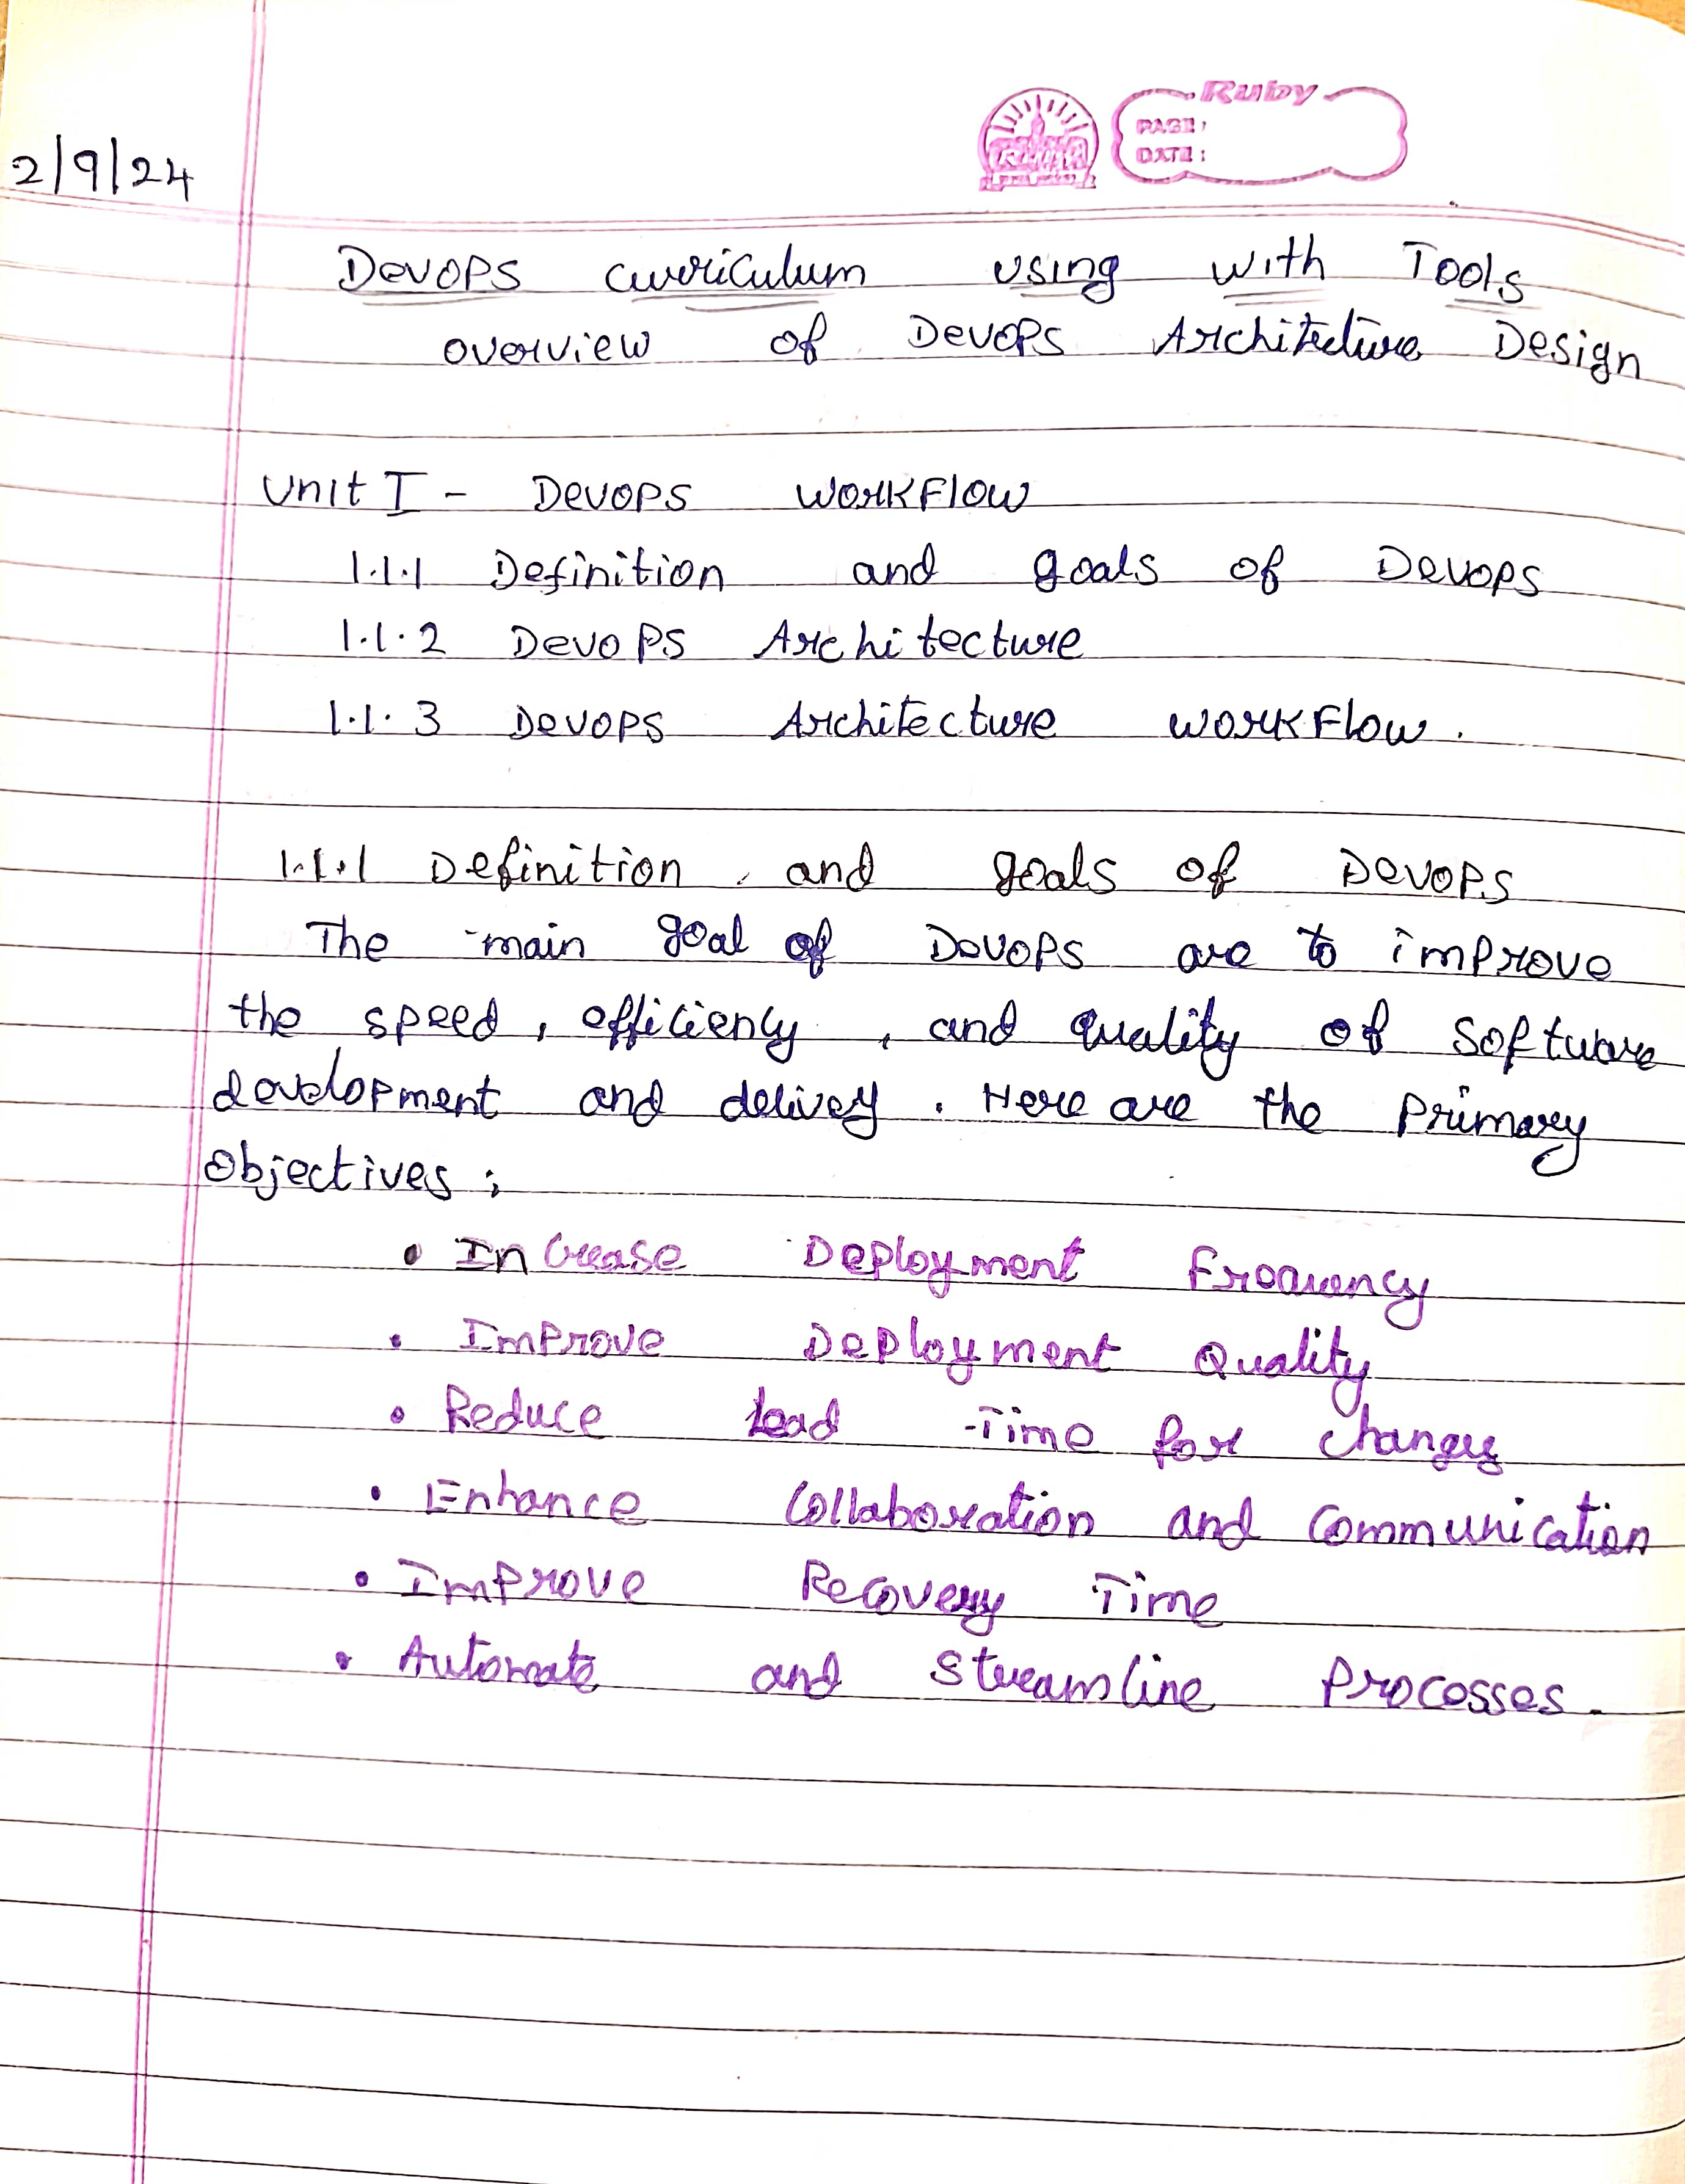 Ruby
PAGE:
DATE:
2/9/24
DevOPS curriculum using with Tools
overview of DevOPS Architecture Design
Unit I - DevOPS WORKFlow
1.1.1 Definition and goals of DevOPS
1.1.2 DevOPS Architecture
1.1.3 DevOPS Architecture WORKFlow.
1.1.1 Definition and goals of DevOPS
The main goal of DevOPS are to improve
the speed, efficiency, and quality of software
development and delivery. Here are the Primary
objectives:
• Increase Deployment Frequency
• Improve Deployment Quality
• Reduce Lead Time for changes
• Enhance Collaboration and Communication
• Improve Recovery Time
• Automate and Streamline Processes.